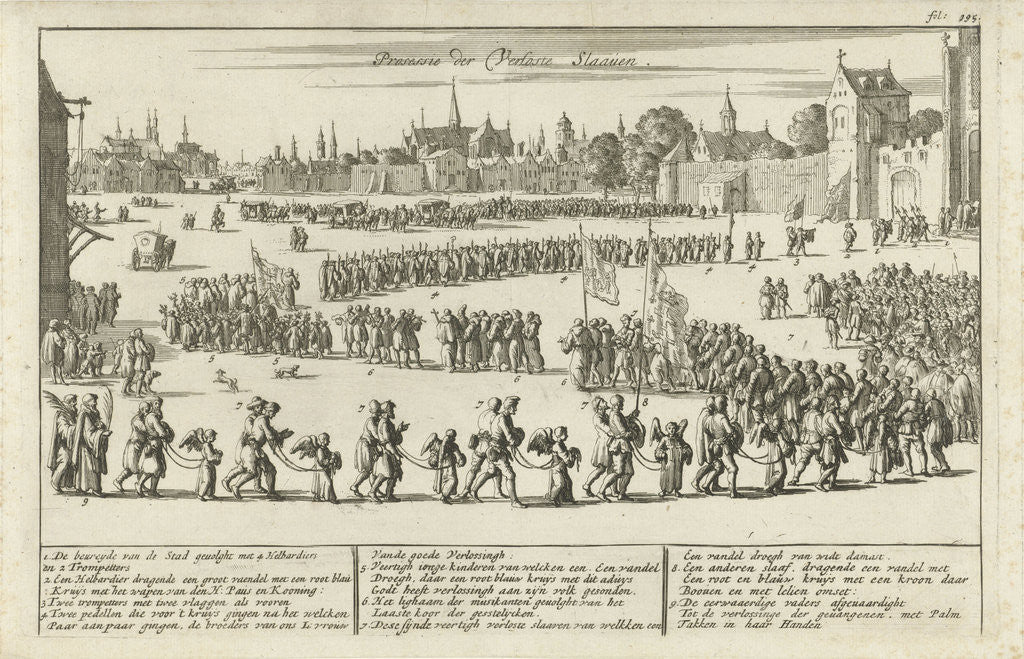 fol: 195.
Prosessie der Verloste Slaaven.
1. De beureyde van de Stad gevolght met 4 Helbardiers
en 2 Trompetters
2. Een Helbardier dragende een groot vaendel met een root blau
Kruys met het wapen van den H: Paus en Kooning:
3 Twee trompetters met twee vlaggen als voren
4 Twee pedellen die voor t kruys gingen na het welcken
Paar aan paar gingen, de broeders van ons L vrouw
Vande goede Verlossingh:
5. Veertigh ionge kinderen van welcken een. Een vandel
Droegh, daar een root blauw kruys met dit aduys
Godt heeft verlossingh aan zyn volk gesonden.
6. Het lighaam der musikanten gevolght van het
Laaste koor der geestelyken.
7. Dese synde veertigh verloste slaaven van welkken een
Een vandel droegh van widt damast.
8. Een anderen slaaf, dragende een vandel met
Een root en blauw kruys met een kroon daar
Booven en met lelien omset:
9. De eerwaerdige vaders afgevaardight
Tot de verlossinge der gevangenen. met Palm
Takken in haar Handen